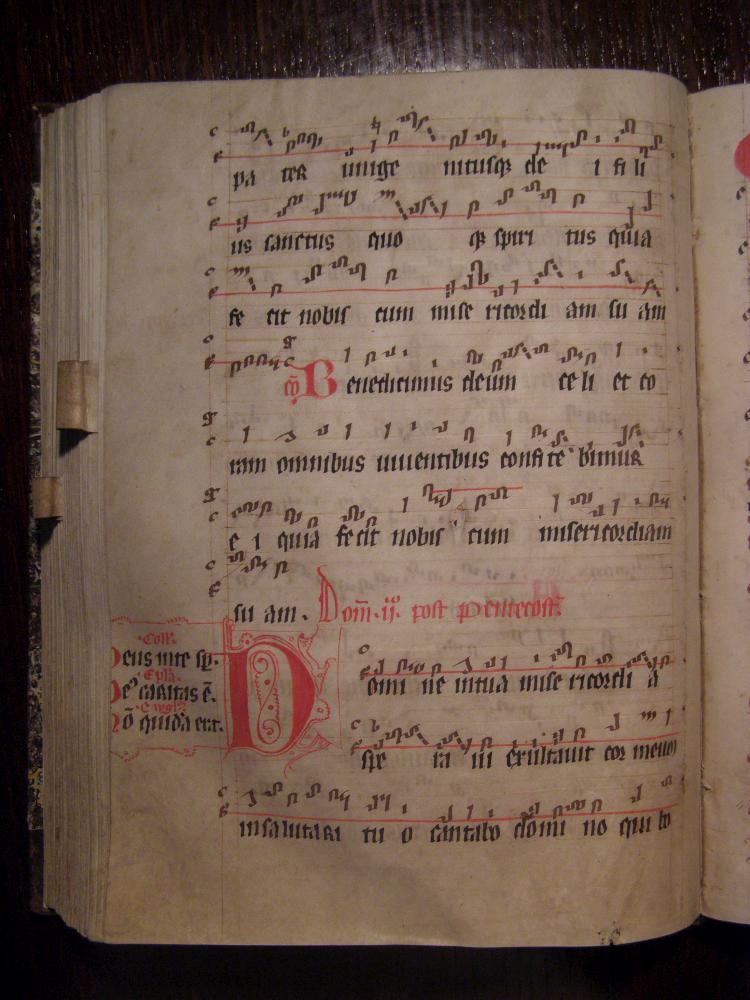 pa ter unige nitusq; de i fi li
us sanctus quo q; spiri tus quia
fe cit nobis cum mise ricordi am su am
co Benedicimus deum ce li et co
ram omnibus uiuentibus confite bimur
e i quia fecit nobis cum misericordiam
su am. Dom̄. ij. post pentecost̄.
Coll̄.
Deus in te sp̄.
Ep̄la.
De' caritas ē.
Ewgl̄.
Domi ne in tua mise ricordi a
spe ra ui exultauit cor meum
in salutari tu o cantabo domi no qui bo